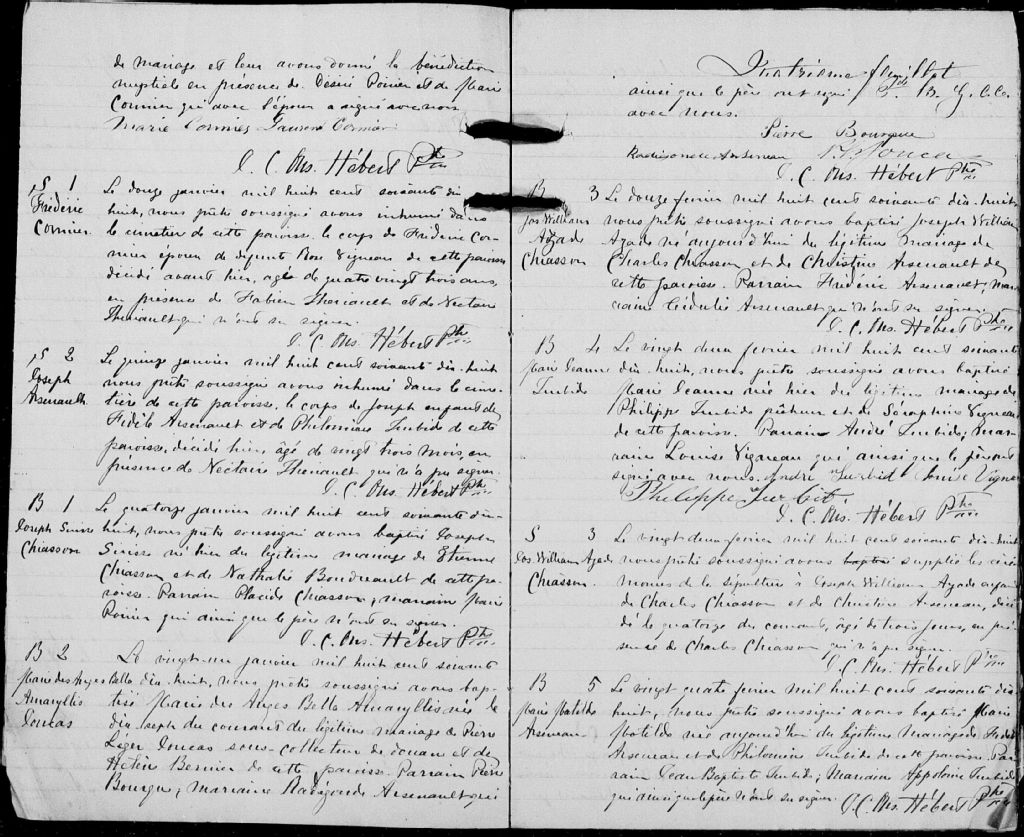 de mariage et leur avons donné la bénédiction
nuptiale en présence de Désiré Poirier et de Marie
Cormier qui avec l'époux a signé avec nous
Marie Cormier Laurent Cormier
J. C. Ons. Hébert Ptre
S 1
Frédéric
Cormier
Le douze janvier mil huit cent soixante dix
huit, nous prêtre soussigné avons inhumé dans
le cimetière de cette paroisse le corps de Frédéric Cor-
mier époux de défunte Rose Vigneau de cette paroisse
décédé avant hier, agé de quatre vingt trois ans,
en présence de Fabien Theriault et de Nectaire
Theriault qui n'ont su signer.
J. C. Ons. Hébert Ptre
S 2
Joseph
Arsenault
Le quinze janvier mil huit cent soixante dix-huit
nous prêtre soussigné avons inhumé dans le cime-
tière de cette paroisse le corps de Joseph enfant de
Fidèle Arsenault et de Philomène Turbide de cette
paroisse, décédé hier, âgé de vingt trois mois, en
présence de Nectaire Theriault qui n'a pu signer.
J. C. Ons. Hébert Ptre
B 1
Joseph Suisse
Chiasson
Le quatorze janvier mil huit cent soixante dix-
huit, nous prêtre soussigné avons baptisé Joseph
né hier du légitime mariage de Etienne
Chiasson et de Nathalie Boudreault de cette pa-
roisse. Parrain Placide Chiasson, marraine Marie
Poirier qui ainsi que le père n'ont su signer.
J. C. Ons. Hébert Ptre
B 2
Marie des Anges Bella
Amaryllis
Joncas
Le vingt-un janvier mil huit cent soixante
dix-huit, nous prêtre soussigné avons bap-
tisé Marie des Anges Bella Amaryllis née le
dix-sept du courant du légitime mariage de Pierre
Léger Joncas sous-collecteur de douane et de
Hélène Bernier de cette paroisse. Parrain Pierre
Bourque, marraine Radegonde Arsenault qui
feuillet
B. G. C. C.
ainsi que le père ont signé
avec nous.
Pierre Bourque
Radegonde Arseneau
J. C. Ons. Hébert Ptre
B 3
Jos William
Azade
Chiasson
Le douze fevrier mil huit cent soixante dix-huit
nous prêtre soussigné avons baptisé Joseph William
Azade né aujourd'hui du légitime mariage de
Charles Chiasson et de Christine Arsenault de
cette paroisse. Parrain Frédéric Arsenault, mar-
raine Arsenault qui n'ont su signer
J. C. Ons. Hébert Ptre
B 4
Marie Jeanne
Turbide
Le vingt deux fevrier mil huit cent soixante
dix-huit, nous prêtre soussigné avons baptisé
Marie Jeanne née hier du légitime mariage de
Philippe Turbide pêcheur et de Séraphine Vigneau
de cette paroisse. Parrain André Turbide; mar-
raine Louise Vigneau qui ainsi que le présent
signé avec nous. André Turbid Louise Vigneau
Philippe Turbit.
J. C. Ons. Hébert Ptre
S 3
Jos. William Azade
Chiasson
Le vingt deux fevrier mil huit cent soixante dix-huit
nous prêtre soussigné avons baptisé suppléé les céré-
monies de la sépulture à Joseph William Azade enfant
de Charles Chiasson et de Christine Arseneau, décé-
dé le quatorze du courant, âgé de trois jours, en pré-
sence de Charles Chiasson qui n'a pu signer.
J. C. Ons. Hébert Ptre
B 5
Marie Matilde
Arseneau
Le vingt quatre fevrier mil huit cent soixante dix-
huit, nous prêtre soussigné avons baptisé Marie
Matilde née aujourd'hui du légitime mariage de Fidèle
Arseneau et de Philomène Turbide de ctte paroisse. Par-
rain Jean Baptiste Turbide; Marraine Appoline Turbide
qui ainsi que le père n'ont su signer. J. C. Ons. Hébert Ptre